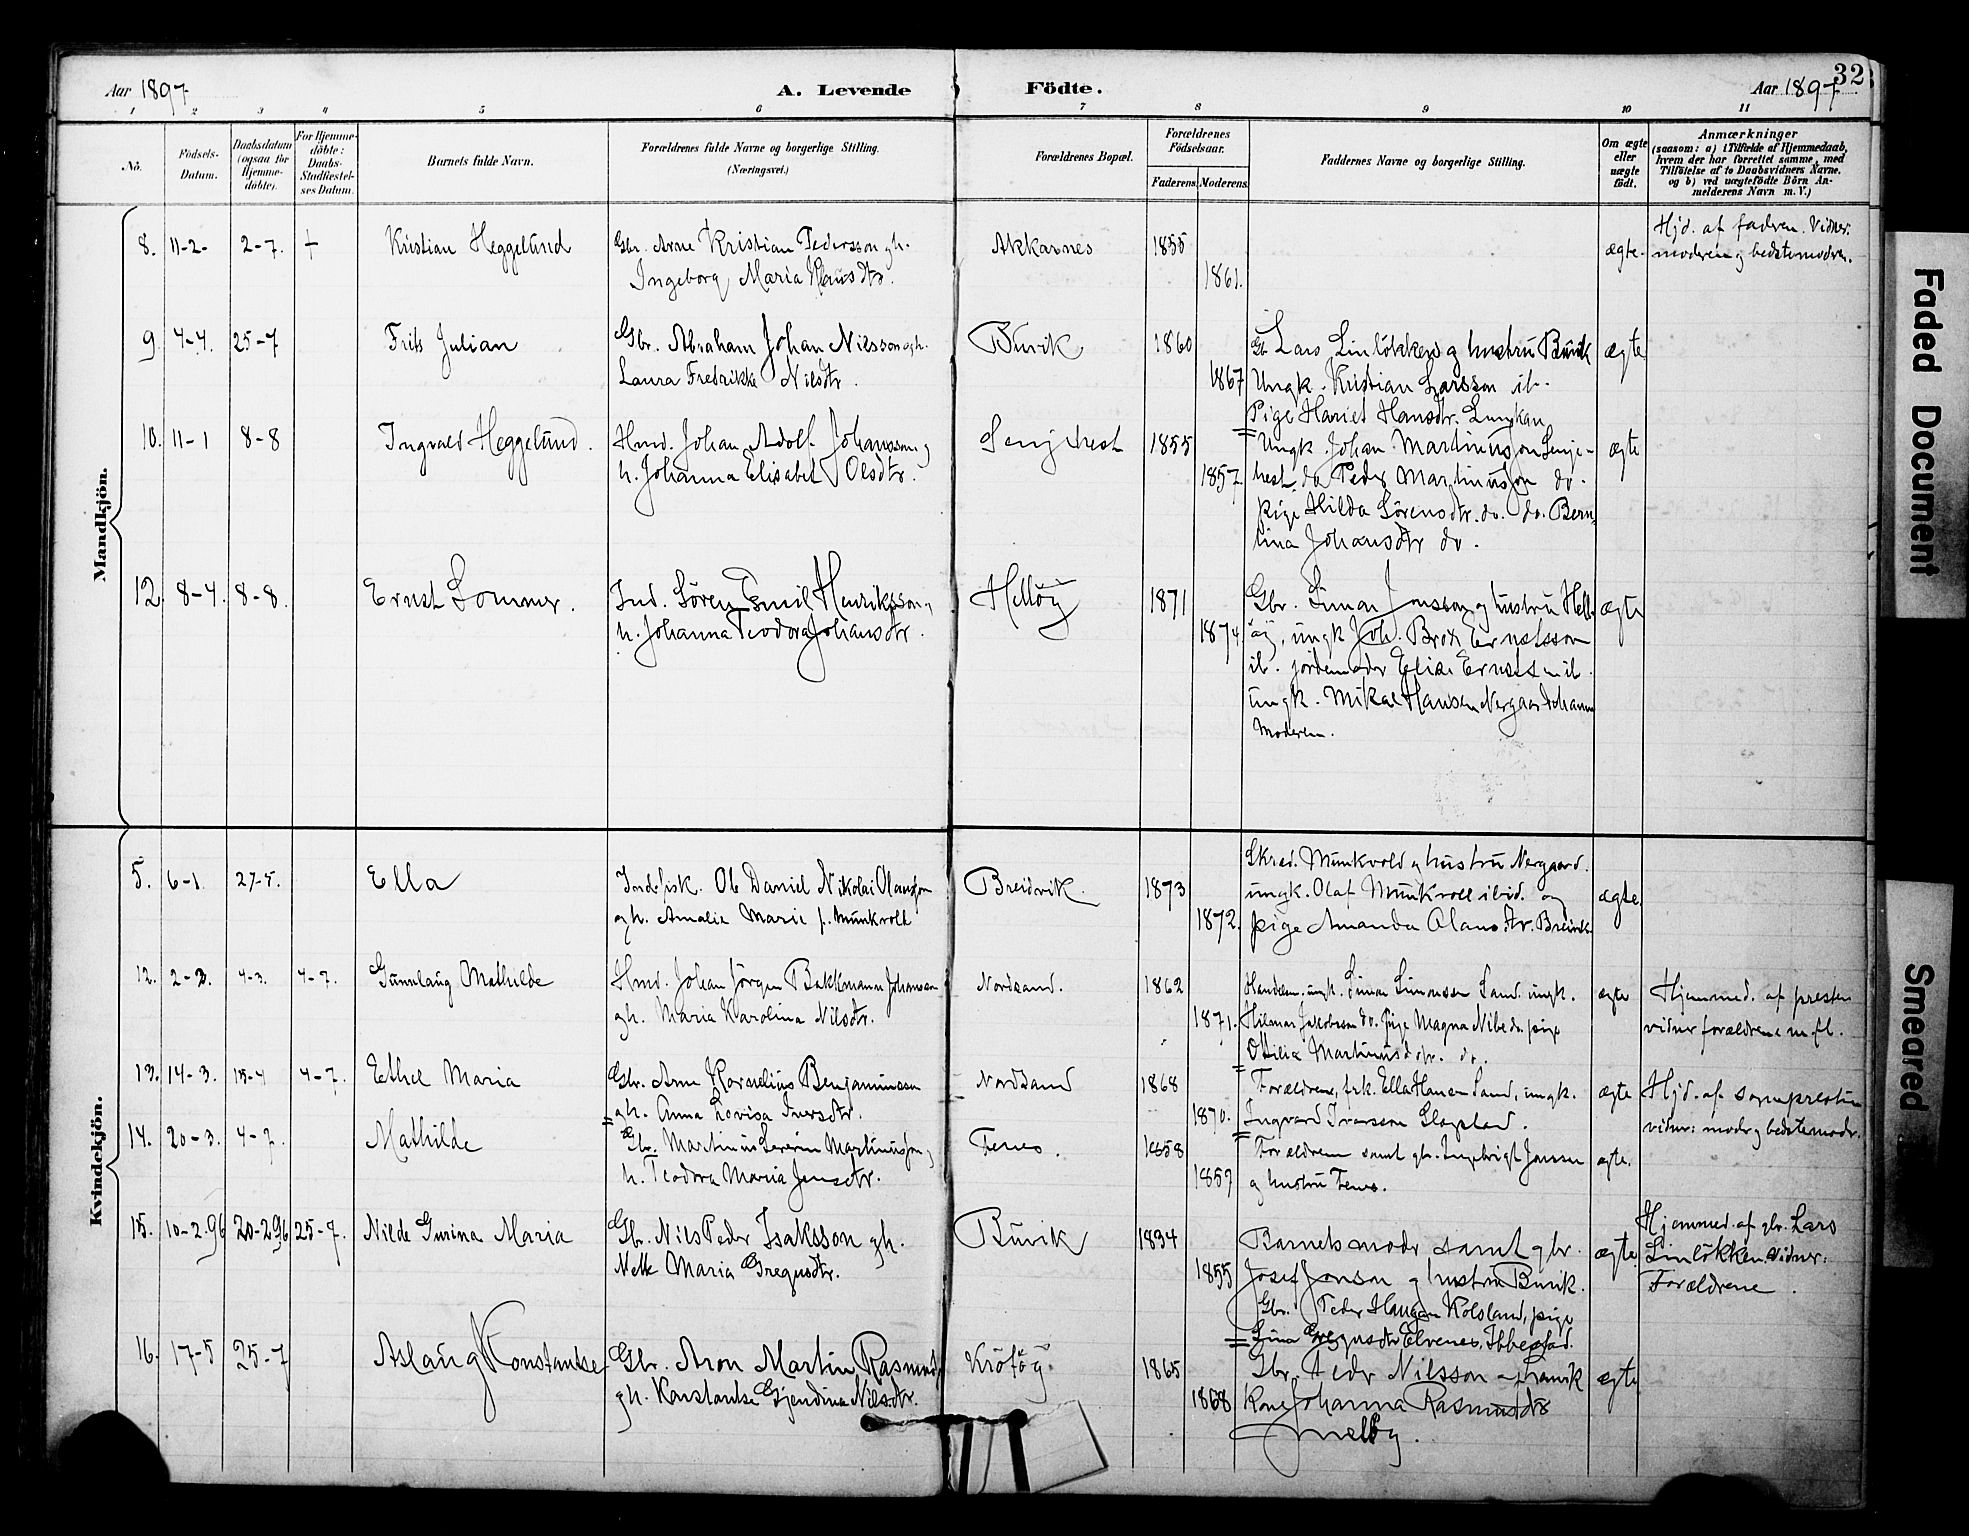 32
Aar 1897
A. Levende Födte.
Aar 1897
1 2 3 4 5 6 7 8 9 10 11
No.
Födsels-Datum.
Daabsdatum (ogsaa for Hjemme-döbte).
For Hjemme-döbte: Daabs-Stadfæstel-ses Datum.
Barnets fulde Navn.
Forældrenes fulde Navne og borgerlige Stilling. (Næringsvei.)
Forældrenes Bopæl.
Forældrenes Födselsaar.
Faderens Moderens
Faddernes Navne og borgerlige Stilling.
Om ægte eller uægte födt.
Anmærkninger
(saasom: a) i Tilfælde af Hjemmedaab, hvem der har forrettet samme, med Tilföielse af to Daabsvidners Navne, og b) ved uægtefödte Börn An-melderens Navn m. V.)
Mandkjön.
8. 11-2- 2-7. + Kristian Heggelund
Gbr. Arne Kristian Pedersson gh.
Ingeborg Maria Hansdtr.
Akkarnes 1855
1861.
ægte.
Hjd. af faderen. Vidner:
moderen og bedstemoder.
9 4-4. 25-7 Frits Julian
Gbr. Abraham Johan Nilsson gh.
Laura Fredrikke Nilsdtr.
Buvik 1860
1867
Gb Lars Linlökken g hustru Buvik
Ungk. Kristian Larsson ib.
Pige Hariet Hansdtr.
ægte
10. 11-1 8-8 Ingvald Heggelund.
Hmd. Johan Adolf Johansson g
h. Johanna Elisabet Olsdtr.
1855
1857
Ungk. Johan Martinusson Senje-
hest. do Peder Martinusson do.
pige Hilda Sörensdtr. do. do. Bern-
tina Johansdtr do.
ægte
12. 8-4. 8-8. Ernst Sommer.
Ind. Sören Emil Henriksson g
h. Johanna Teodora Johansdtr.
Hellöy 1871
1874.
Gbr. Simon Jonsson g hustru Hell-
öy, ungk Joh. Brox Ernstsson
ib. jordemoder ib.
ungk. Mikal Hansen Nergaard
Moderen.
ægte
Kvindekjön.
5. 6-1. 27-5. Ella
Indsfisk. Ole Daniel Nikolai Olausson
gh. Amalie Marie f. Munkvold
Breidvik. 1873
1872.
Skred. Munkvold g hustru Nergaard.
ungk. Olaf Munkvold ibid. og
pige Amanda Olausdtr. Breivik.
ægte.
12. 2-3. 4-3. 4-7. Gunnlaug Mathilde
Hmd. Johan Jörgen Bakkmann Johansen
gh. Maria Karolina Nilsdtr.
Nordsand. 1862
1871.
ungk. Simon Simonsen Sand. ungk.
Hilmar Jakobsson do. pige Magna Nibe do. pige
Otilie Martinusdtr. do.
ægte
Hjemmed. af presten
vidner forældrene m. fl.
13. 14-3. 18-4 4-7. Ethel Maria
Gbr. Arne Kornelius Benjaminsen
gh. Anna Lovisa Iversdtr.
Nordsand 1868
1870.
Forældrene, frk. Ella Hansen Sand, ungk.
Ingvard Ivarsson Slagstad.
ægte
Hjd. af sogneprestin
vidner: moder g bedstemoder.
14. 20-3. 4-7. Mathilde
Gbr. Martinus Severin Martinusson g
h. Teodora Maria Jensdtr.
Fenes. 1858
1859
Forældrene samt gbr. Ingebrigt Jonssen
g hustru Fenes.
ægte.
15. 10-2.96 20-2.96 25-7. Nilde Gurina Maria
Gbr. Nils Peder Isaksson gh.
Nelle Maria Gregusdtr.
Buvik 1834
1855
Barnets moder samt gbr.
Josef Jonson g hustru Buvik.
Gbr. Peder Haugen Kolsland, pige
Sina Gregusdtr Elvenes, Ibbestad.
ægte
Hjemmed. af gbr. Lars
Linlökken. Vidner:
Forældrene.
16. 17-5 25-7 Aslaug Konstantse
Gbr. Aron Martin Rasmuss.
gh. Konstantse Gjendine Nilsdtr.
Kröföy. 1865
1868
Gbr. Peder Nilsson
Kone Johanna Rasmusdtr
ægte
Faded Document
Smeared